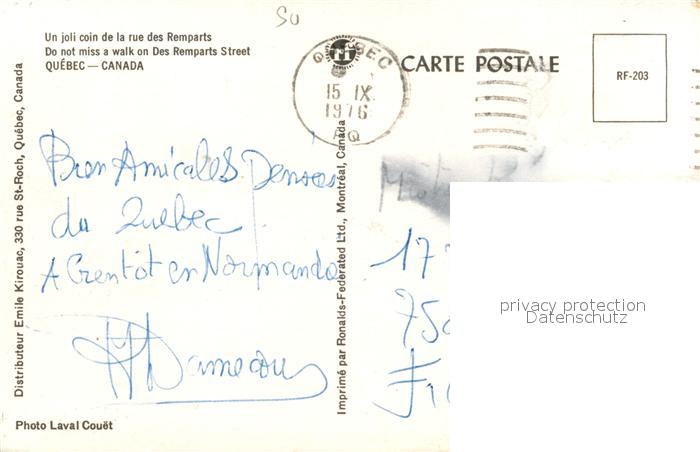 50
Un joli coin de la rue des Remparts
Do not miss a walk on Des Remparts Street
QUÉBEC — CANADA
QUÉBEC
15 IX
1976
PQ
CARTE POSTALE
RF-203
Bien Amicales Pensées
du Quebec
A Bientôt en Normandie
17
750
Fr
privacy protection
Datenschutz
Distributeur Emile Kirouac, 330 rue St-Roch, Québec, Canada
Imprimé par Ronalds-Federated Ltd., Montréal, Canada
Photo Laval Couët